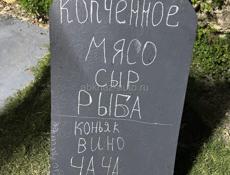 КОПЧЁННОЕ
МЯСО
СЫР
РЫБА
КОНЬЯК
ВИНО
ЧАЧА